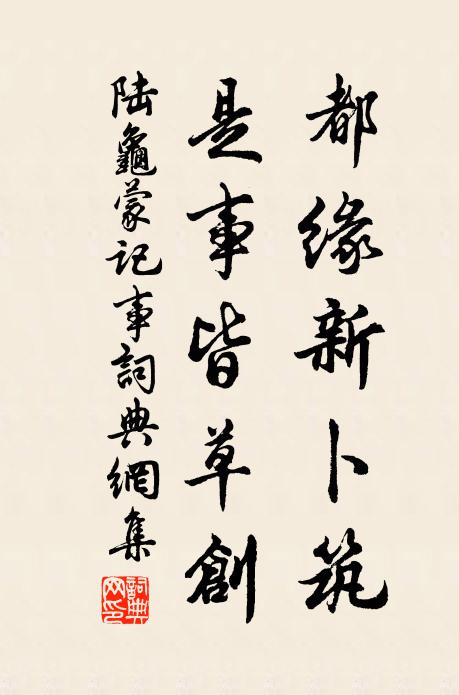 都緣新卜筑
是事皆草創
陆龜蒙记事詞典網集
詞典
网印